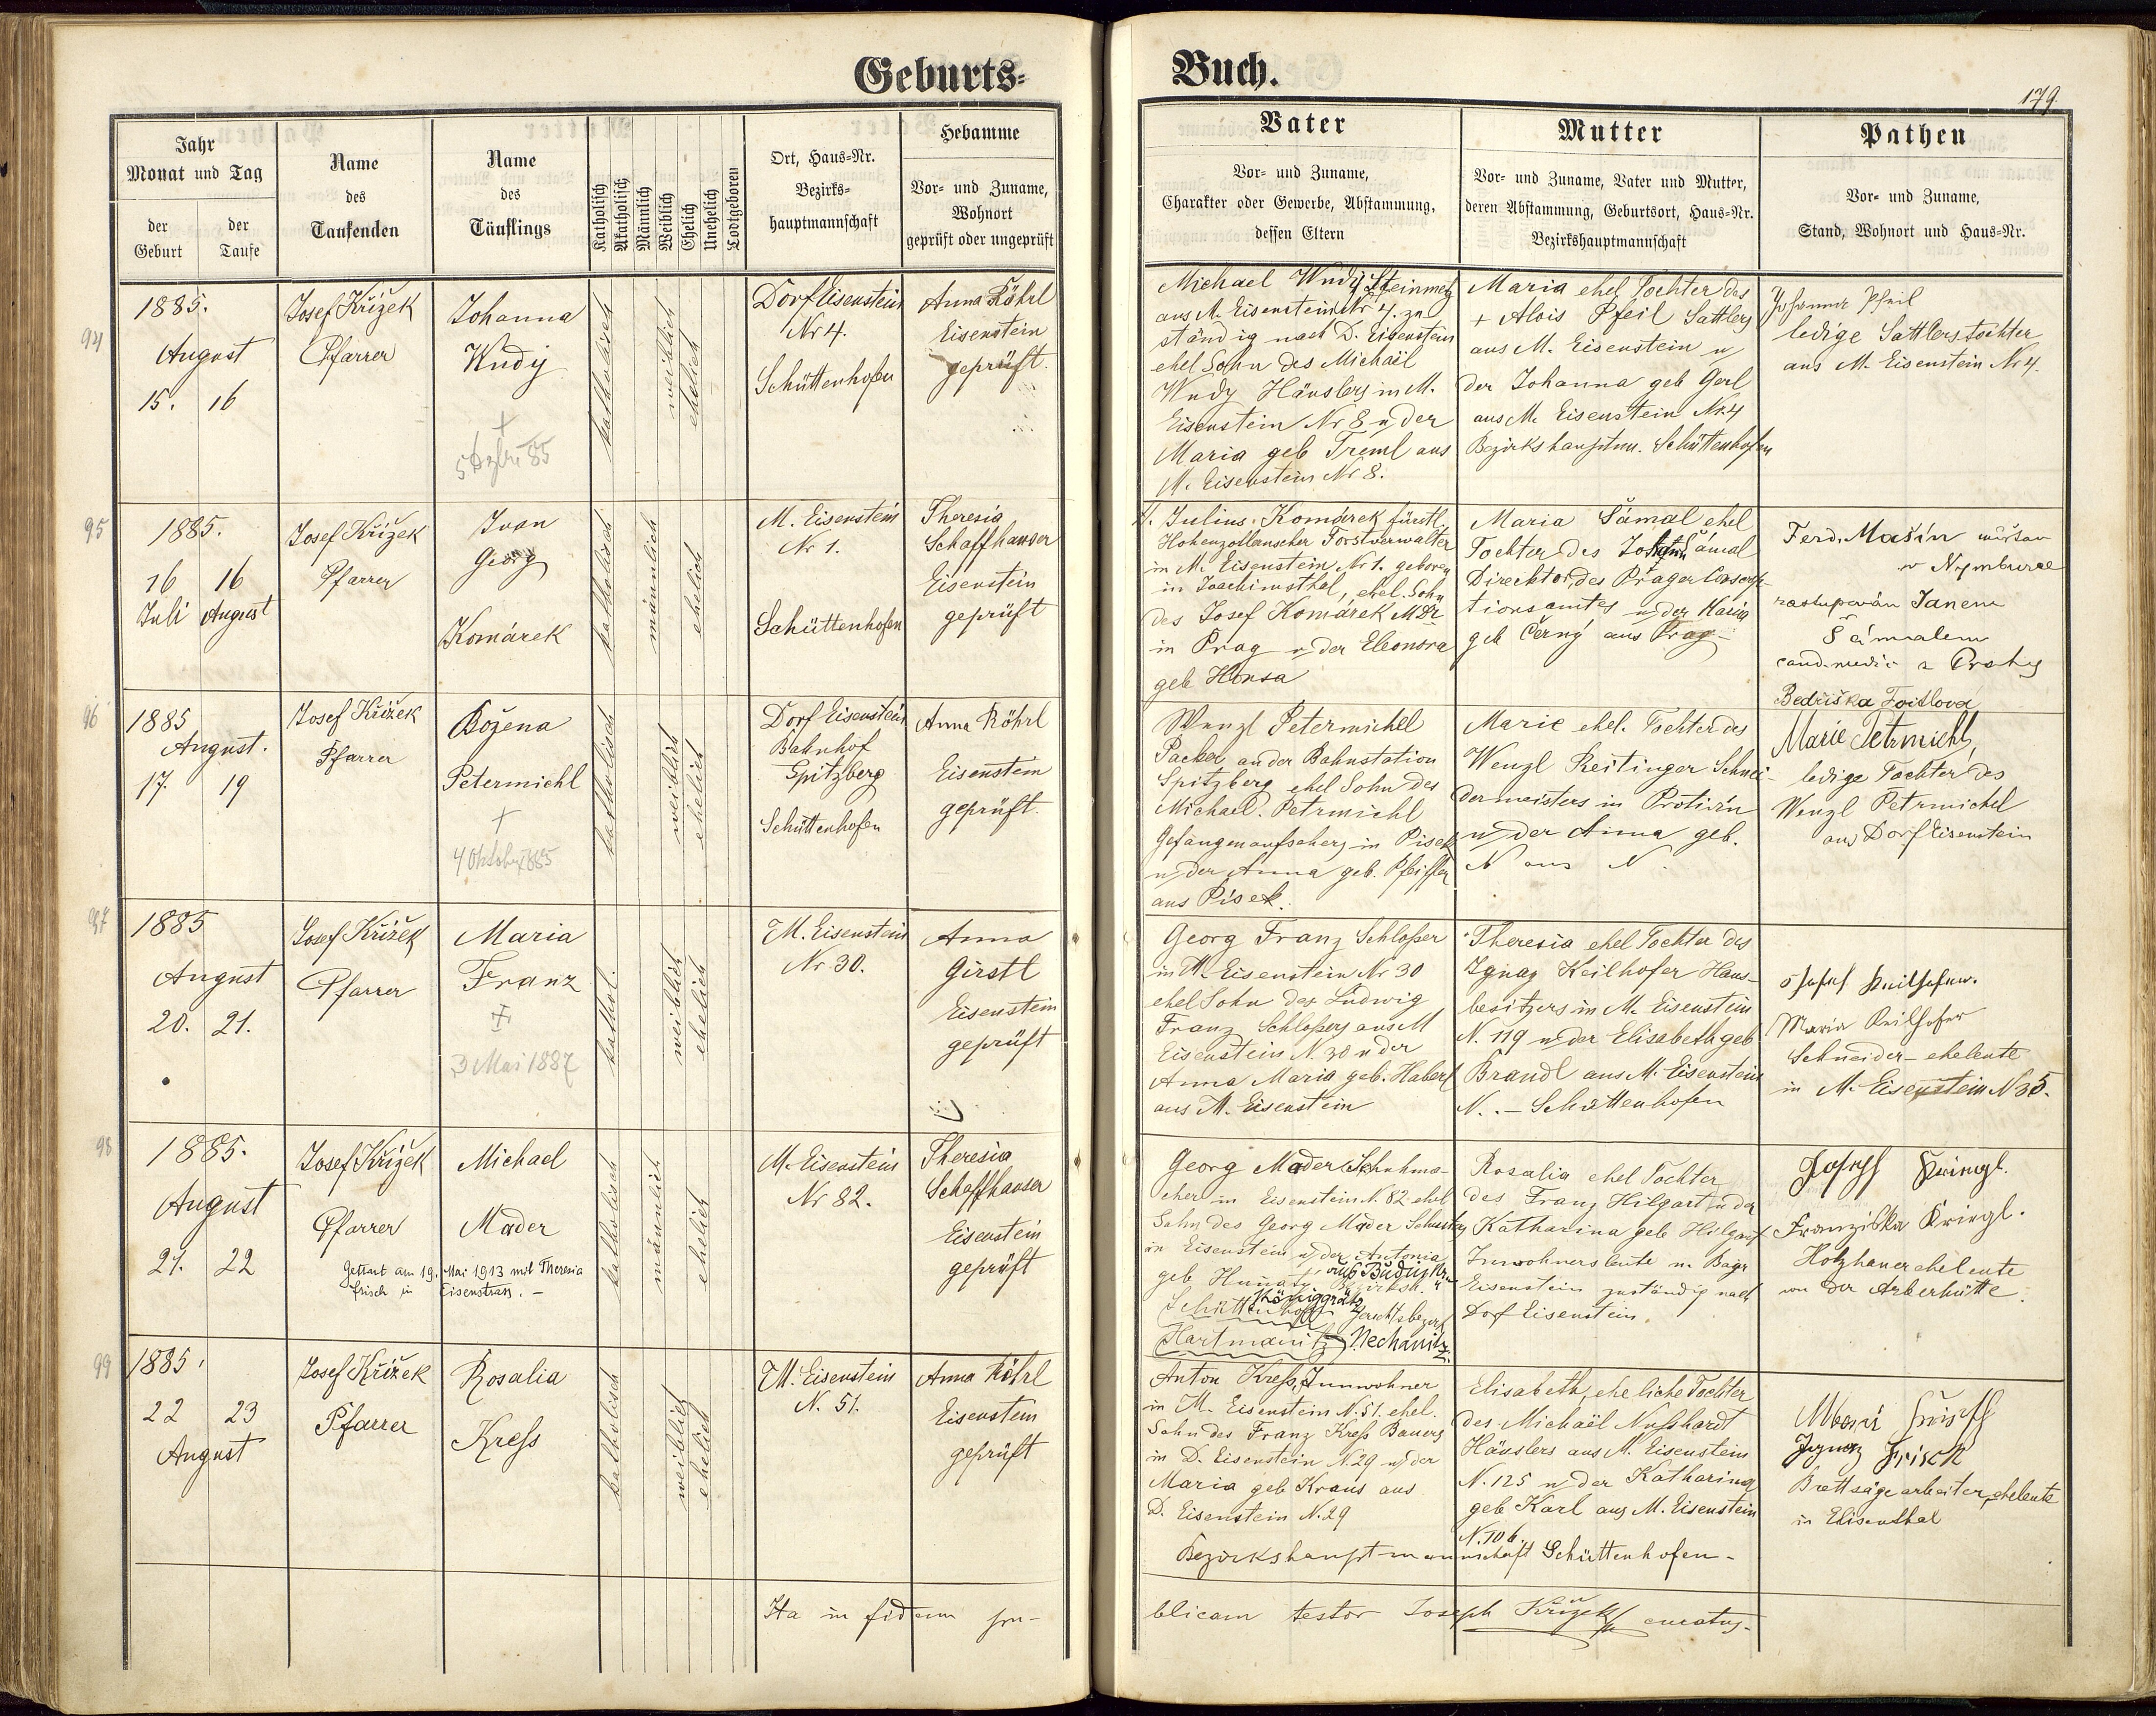 Geburts-
Buch.
179.
Jahr
Monat und Tag
der Geburt
der Taufe
Name
des
Taufenden
Name
des
Täuflings
Katholisch
Akatholisch
Männlich
Weiblich
Ehelich
Unehelich
Todtgeboren
Ort, Haus-Nr.
Bezirks-
hauptmannschaft
Hebamme
Vor- und Zuname,
Wohnort
geprüft oder ungeprüft
Vater
Vor- und Zuname,
Charakter oder Gewerbe, Abstammung,
dessen Eltern
Mutter
Vor- und Zuname, Vater und Mutter,
deren Abstammung, Geburtsort, Haus-Nr.
Bezirkshauptmannschaft
Pathen
Vor- und Zuname,
Stand, Wohnort und Haus-Nr.
94
1885.
August
15. 16
Josef Křížek
Pfarrer
Johanna
Wudy
+
5 85
katholisch
weiblich
ehelich
Dorf Eisenstein
Nr 4.
Schüttenhofen
Anna Röhrl
Eisenstein
geprüft.
Michael Wudy Steinmetz
aus M. Eisenstein Nr 4. zu
ständig nach D. Eisenstein
ehel Sohn des Michaël
Wudy Häuslers in M.
Eisenstein Nr 8 u der
Maria geb Treml aus
M. Eisenstein Nr 8.
Maria ehel Tochter des
+ Alois Pfeil Sattlers
aus M. Eisenstein u
der Johanna geb Gerl
aus M. Eisenstein Nr 4
Bezirkshauptm. Schüttenhofen
Johanna Pfeil
ledige Sattlerstochter
aus M. Eisenstein Nr 4.
95
1885.
16 16
Juli August
Josef Křížek
Pfarrer
Ivan
Georg
Komárek
katholisch
männlich
ehelich
M. Eisenstein
Nr 1.
Schüttenhofen
Theresia
Schaffhauser
Eisenstein
geprüft
Julius Komárek fürstl.
Hohenzollernscher Forstverwalter
in M. Eisenstein Nr 1. geboren
in Joachimsthal, ehel. Sohn
des Josef Komárek MDr
in Prag u der Eleonora
geb Hansa
Maria Šámal ehel
Tochter des Johann Šámal
Direktor des Prager Conscrip-
tionsamtes u der Maria
geb Černý aus Prag
Ferd. Mašín
v Nymburce
zastupován Janem
Šámalem
cand. medic z Prahy
Bedřiška Foitlova
96
1885
August.
17. 19
Josef Křížek
Pfarrer
Božena
Petermichl
+
4 Oktober 1885
katholisch
weiblich
ehelich
Dorf Eisenstein
Bahnhof
Spitzberg
Schüttenhofen
Anna Röhrl
Eisenstein
geprüft.
Wenzl Petermichel
Packer an der Bahnstation
Spitzberg ehel Sohn des
Michael Petrmichl
Gefangenaufsehers in Pisek
u der Anna geb. Pfeiffer
aus Pisek.
Marie ehel. Tochter des
Wenzl Reitinger Schnei-
dermeisters in Protivín
u der Anna geb.
N aus N.
Marie Petrmichl,
ledige Tochter des
Wenzl Petrmichel
aus Dorf Eisenstein
97
1885
August
20. 21.
Josef Křížek
Pfarrer
Maria
Franz
+
3 Mai 1887
kathol.
weiblich
ehelich
M. Eisenstein
Nr 30.
Anna
Girstl
Eisenstein
geprüft
Georg Franz Schloßer
in M. Eisenstein Nr 30
ehel Sohn des Ludwig
Franz Schloßers aus M
Eisenstein N. 30 u der
Anna Maria geb. Haberl
aus M. Eisenstein
Theresia ehel Tochter des
Ignaz Keilhofer Haus-
besitzers in M. Eisenstein
N. 119 u der Elisabeth geb
Brandl aus M. Eisenstein
N. . - Schüttenhofen
Josef Keilhofer.
Maria Keilhofer
Schneider- eheleute
in M. Eisenstein N 35.
98
1885.
August
21. 22
Josef Křížek
Pfarrer
Michael
Mader
Getraut am 19. Mai 1913 mit Theresia
Frisch in Eisenstrass. -
katholisch
männlich
ehelich
M. Eisenstein
Nr 82.
Theresia
Schaffhauser
Eisenstein
geprüft
Georg Mader Schuhma-
cher in Eisenstein N. 82 ehel
Sohn des Georg Mader Schusters
in Eisenstein u der Antonia
geb
Königgrätz
Schüttenhofen Gerichtsbezirk
Hartmanitz Nechanitz.
Rosalia ehel Tochter
des Franz Hilgart u der
Katharina geb Hilgart
Inwohnersleute in Bayr
Eisenstein zuständig nach
Dorf Eisenstein.
Joseph Kringl.
Franziska Kringl.
Holzhauer eheleute
von der Arberhütte.
99
1885.
22 23
August
Josef Křížek
Pfarrer
Rosalia
Kreſs
katholisch
weiblich
ehelich
M. Eisenstein
N. 51.
Anna Röhrl
Eisenstein
geprüft
Anton Kreſs, Innwohner
in M. Eisenstein N. 51. ehel.
Sohn des Franz Kreſs Bauers
in D. Eisenstein N. 29 u der
Maria geb Kraus aus
D. Eisenstein N. 29
Elisabeth, eheliche Tochter
des Michaël Nuſshardt
Häuslers aus M. Eisenstein
N. 125 u der Katharina
geb Karl aus M. Eisenstein
N. 106.
Bezirkshauptmannschaft Schüttenhofen-
Ignaz Frisch
Brettsägearbeiter, eheleute
in Elisenthal
Ita in fidem pu-
blicam testor Joseph Křížek curatus.